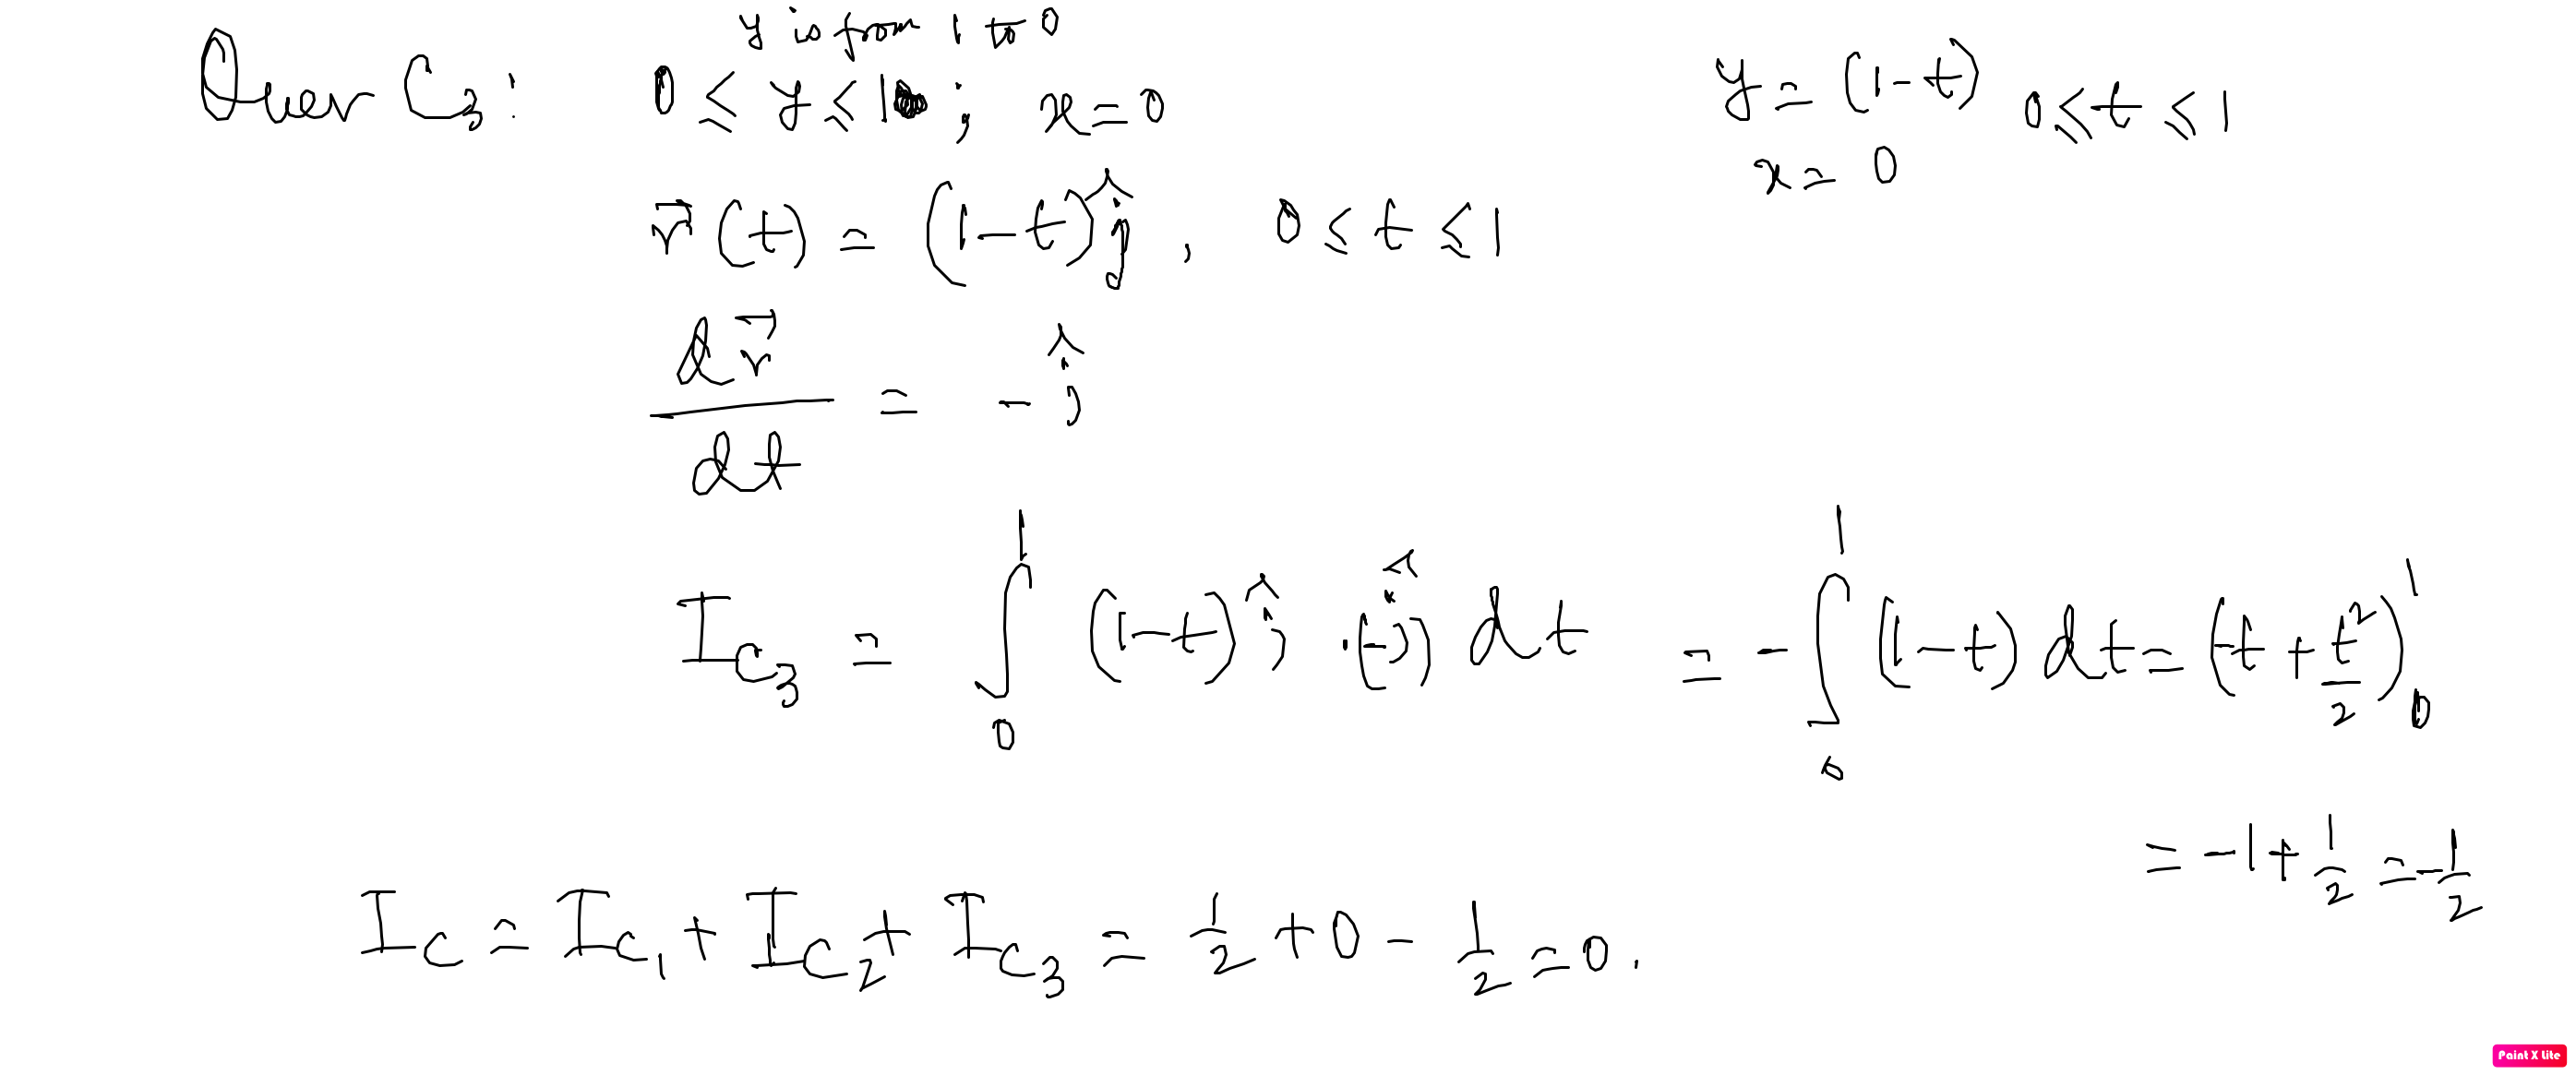 y is from 1 to 0
Over C₃: 0 ≤ y ≤ 1 ; x = 0
y = (1-t) 0 ≤ t ≤ 1
x = 0
r⃗(t) = (1-t)ĵ , 0 ≤ t ≤ 1
dr⃗/dt = -ĵ
I_C₃ = ∫₀¹ (1-t)ĵ · (-ĵ) dt = -∫₀¹ (1-t) dt = (-t + t²/2)₀¹
= -1 + 1/2 = -1/2
I_C = I_C₁ + I_C₂ + I_C₃ = 1/2 + 0 - 1/2 = 0.
Paint X Lite